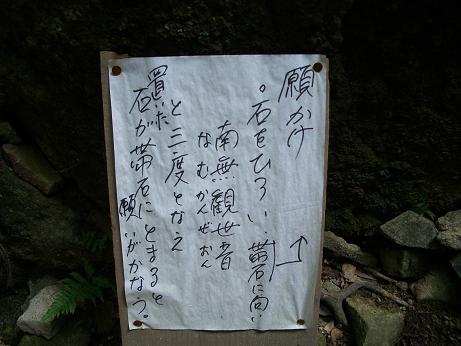 願かけ
。石をひろい、帯石に向い
南無観世音
なむかんぜおん
と三度となえ
置いた
石が帯石にとまると
願いがかなう。